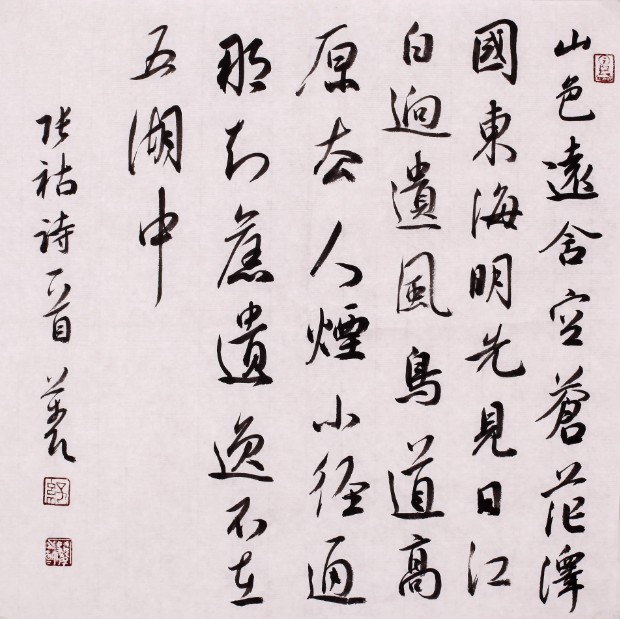 山色遠含空蒼茫澤
國東海明先見日江
白迥遺風鳥道高
原去人煙小徑通
那知舊遺逸不在
五湖中
张祜诗一首